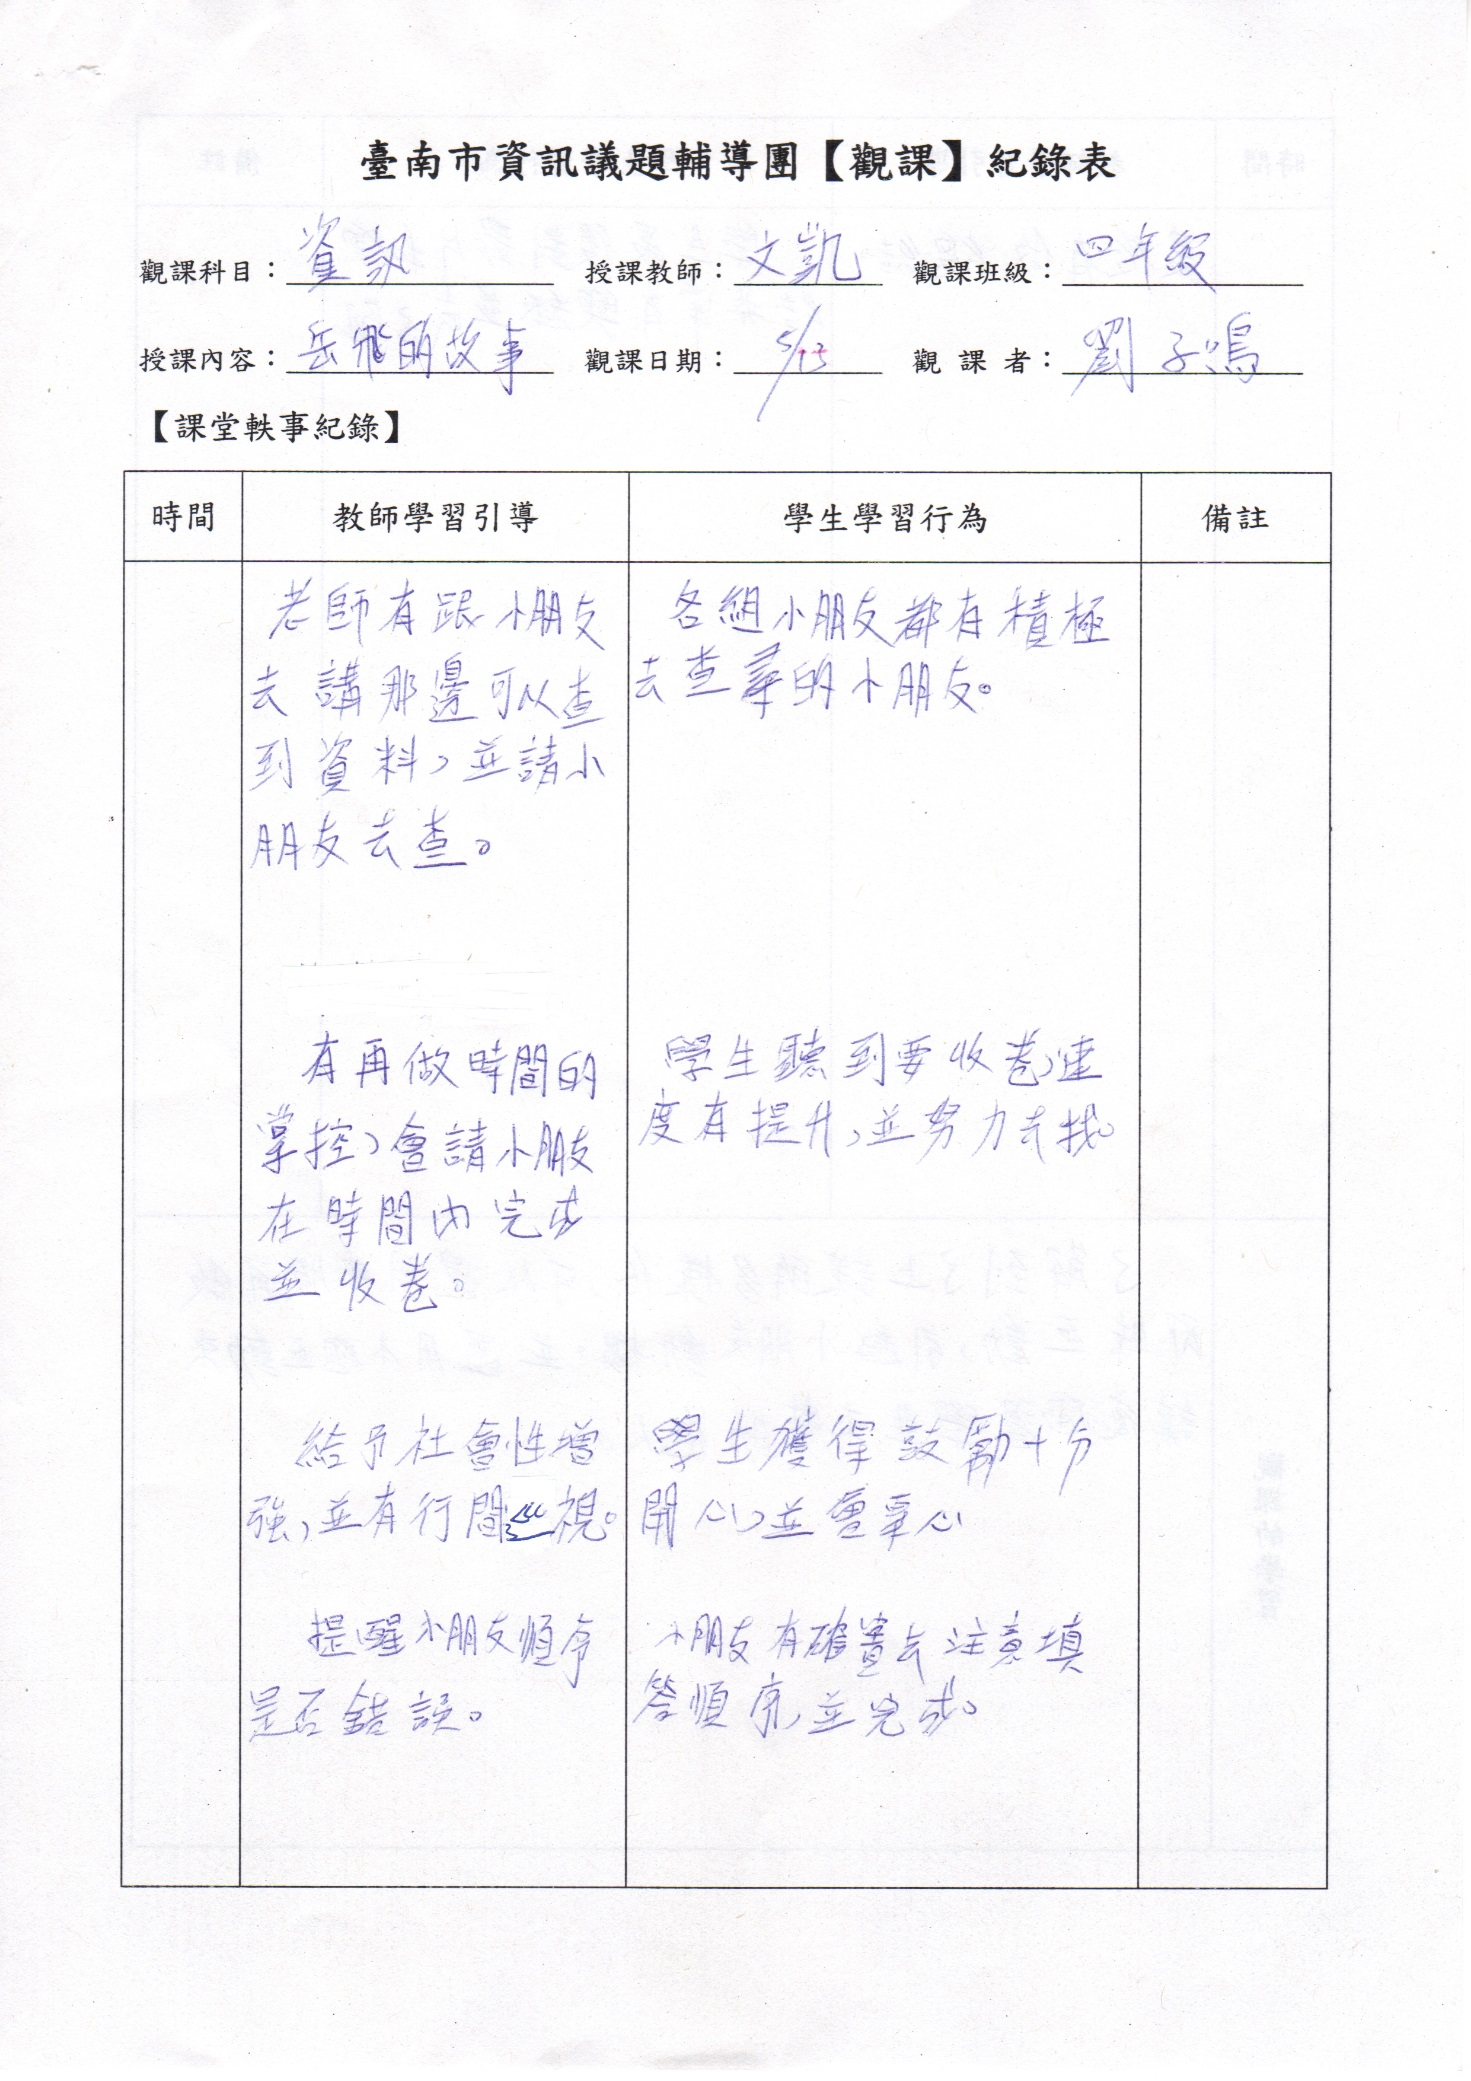 臺南市資訊議題輔導團【觀課】紀錄表
觀課科目：資訊 授課教師：文凱 觀課班級：四年級
授課內容：岳飛的故事 觀課日期：5/ 觀課者：劉子鳴
【課堂軼事紀錄】
時間 教師學習引導 學生學習行為 備註
老師有跟小朋友
去講那邊可以查
到資料，並請小
朋友去查。
各組小朋友都有積極
去查尋的小朋友。
有再做時間的
掌控，會請小朋友
在時間內完成
並收卷。
學生聽到要收卷，速
度有提升，並努力去找。
給予社會性增
強，並有行間巡視。
學生獲得鼓勵十分
開心，並會爭心
提醒小朋友順序
是否錯誤。
小朋友有確實去注意填
答順序，並完成。